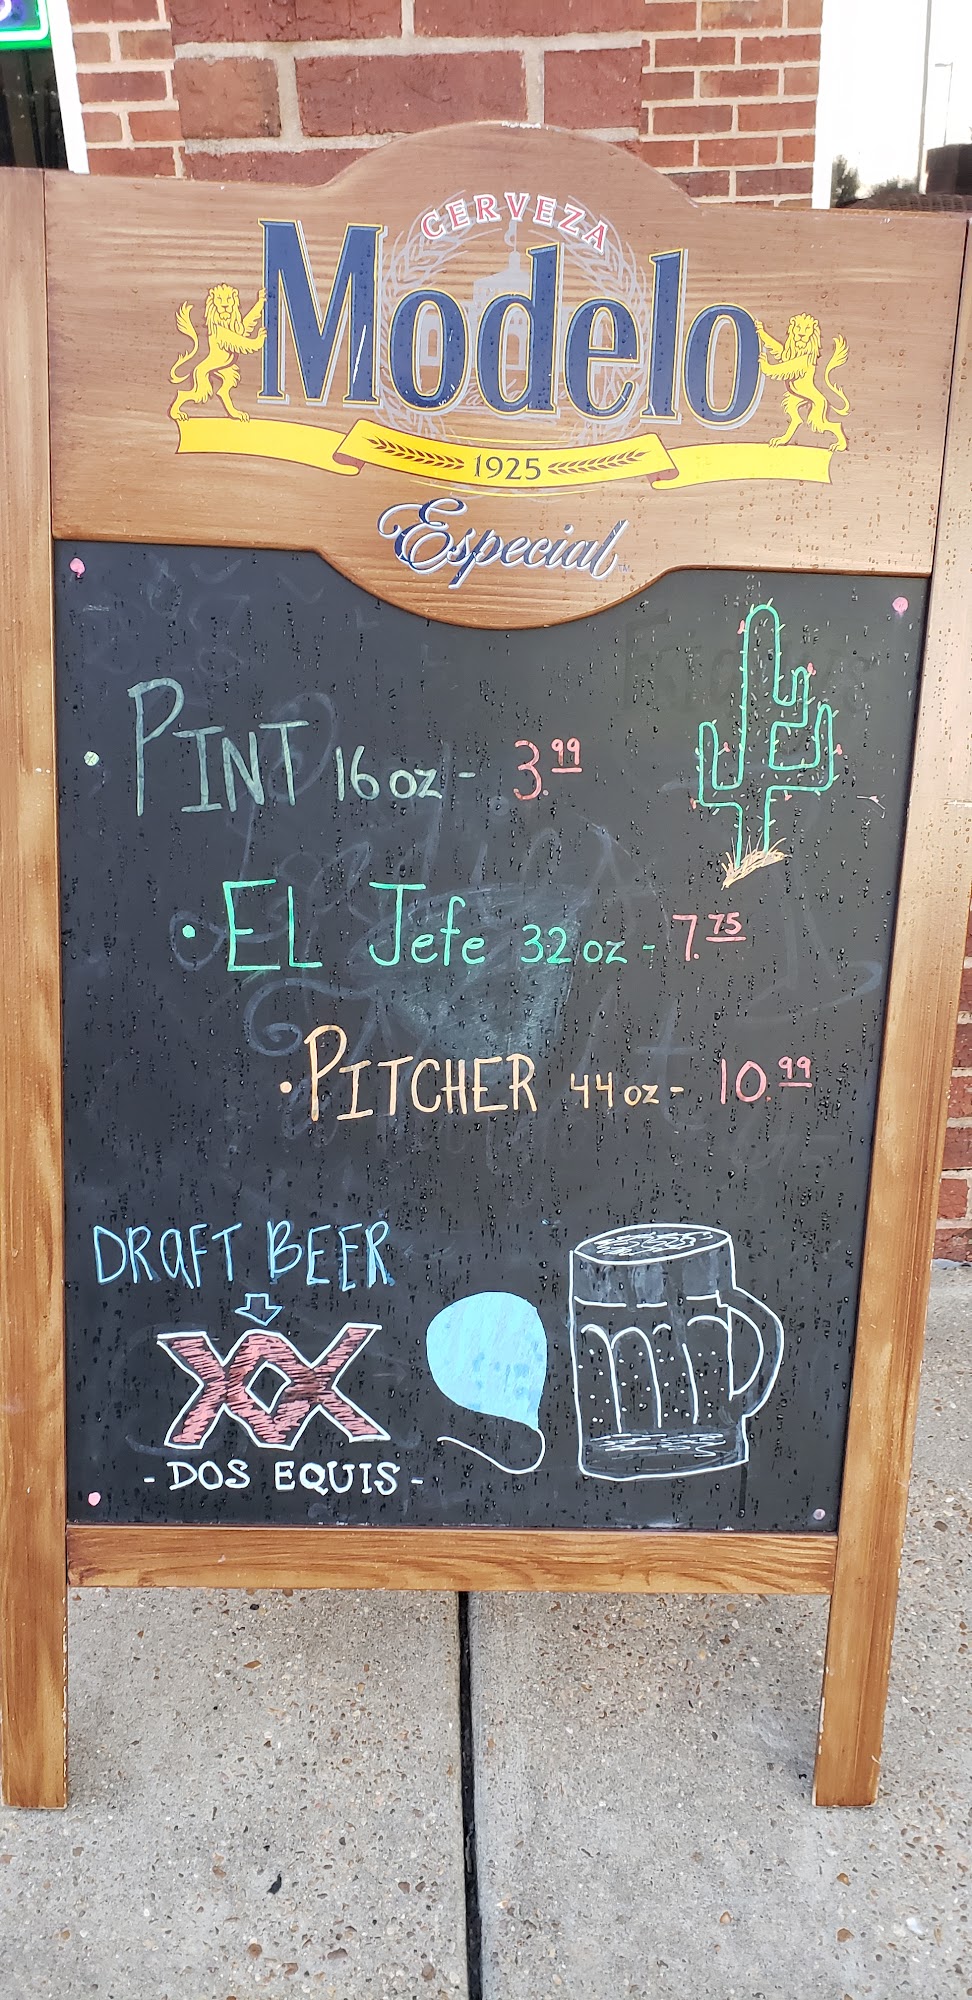 CERVEZA
Modelo
1925
Especial
• PINT 16 oz - 3.99
• EL Jefe 32 oz - 7.75
• PITCHER 44 oz - 10.99
DRAFT BEER
XX
- DOS EQUIS -